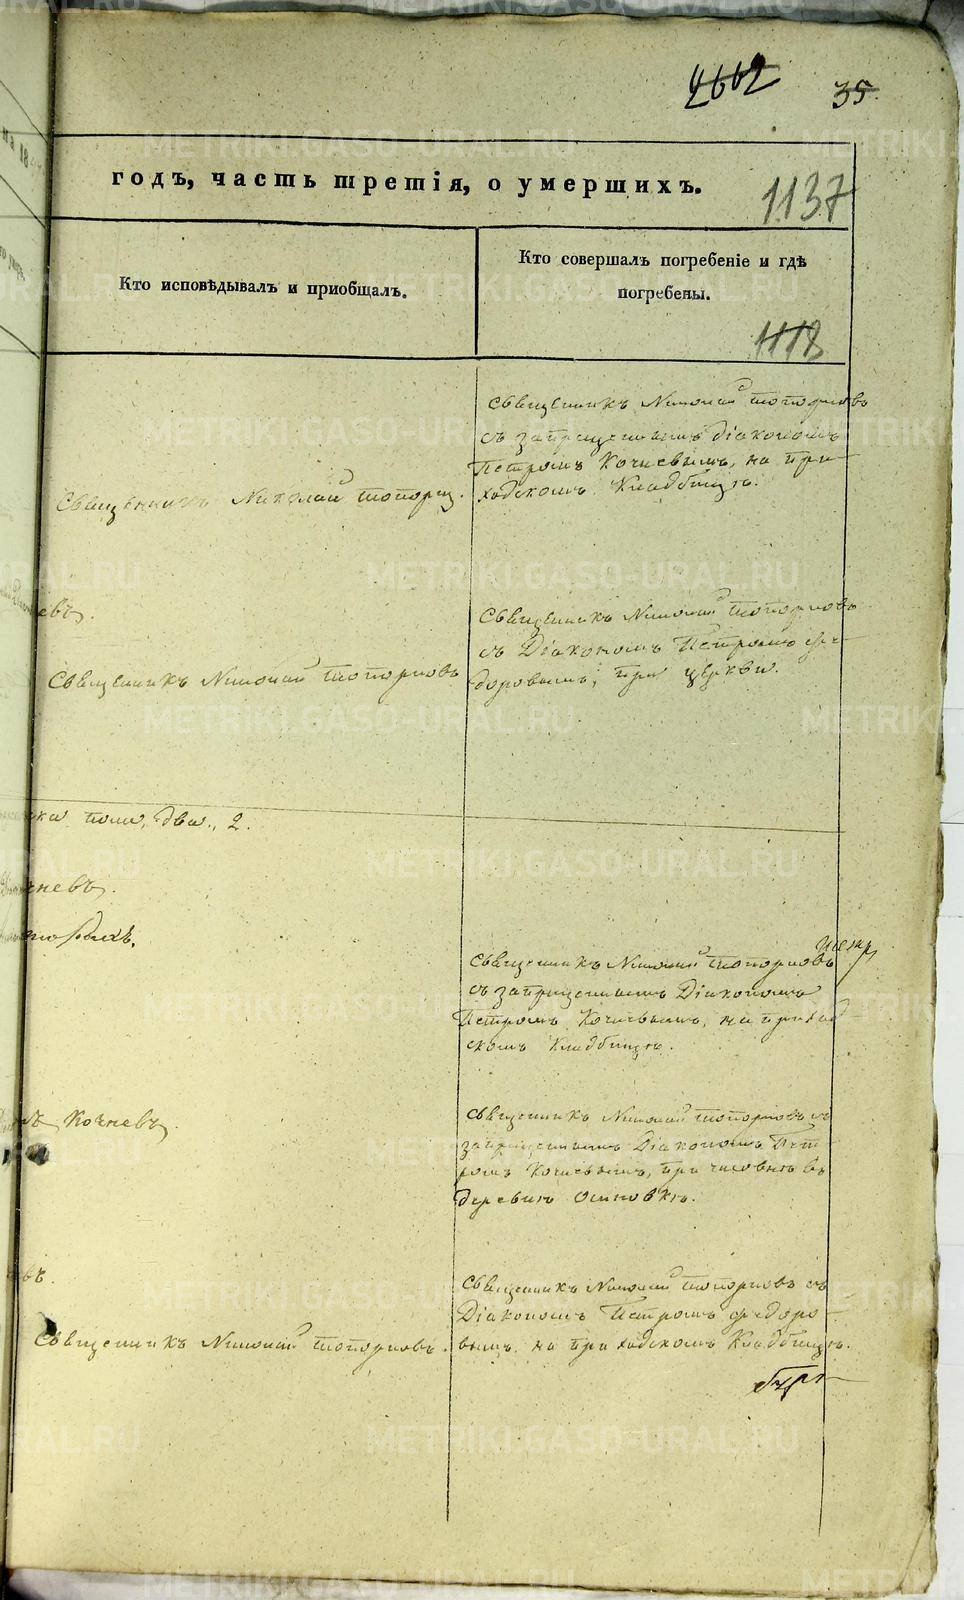 2662 35.
годъ, часть третія, о умершихъ.
1137
Кто исповѣдывалъ и приобщалъ.
Кто совершалъ погребеніе и гдѣ
погребены.
1118
Священникъ Николай Топорковъ
съ запрещеннымъ діакономъ
Петромъ Кочневымъ, на при
ходскомъ Кладбищѣ.
Священникъ Николай Топорк.
евъ.
Священникъ Николай Топорковъ
съ Діакономъ Петромъ Фе-
доровымъ, при церкви.
Священникъ Николай Топорковъ
ка пола, два, 2.
чневъ.
Священникъ Николай Топорковъ
съ запрещеннымъ Діакономъ
Петромъ Кочневымъ, на приход
скомъ Кладбищѣ.
ъ Кочневъ
Священникъ Николай Топорковъ съ
запрещеннымъ Діакономъ Пет
ромъ Кочневымъ, при часовнѣ въ
деревнѣ Осиновкѣ.
въ.
Священникъ Николай Топорковъ съ
Діакономъ Петромъ Федоро
вымъ, на приходскомъ Кладбищѣ.
Священникъ Николай Топорковъ.
METRIKI.GASO-URAL.RU